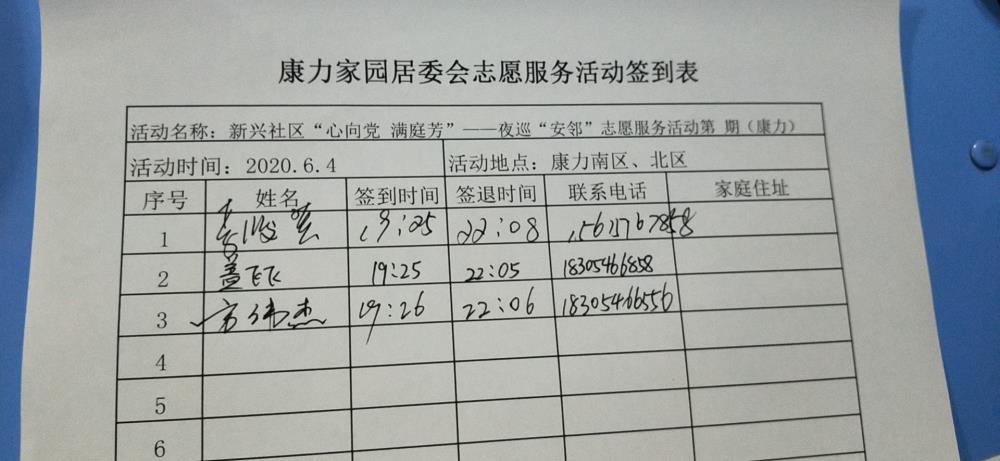 康力家园居委会志愿服务活动签到表
活动名称：新兴社区“心向党 满庭芳”——夜巡“安邻”志愿服务活动第 期（康力）
活动时间：2020.6.4 活动地点：康力南区、北区
序号 姓名 签到时间 签退时间 联系电话 家庭住址
1 19:25 22:08
2 盖飞飞 19:25 22:05 18305466858
3 方伟杰 19:26 22:06 18305466556
4
5
6